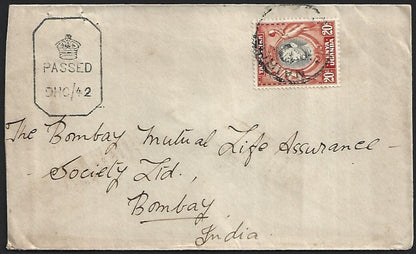 PASSED
DHC/42
20c
KENYA
UGANDA
20c
The Bombay Mutual Life Assurance -
- Society Ltd.,
Bombay
India.